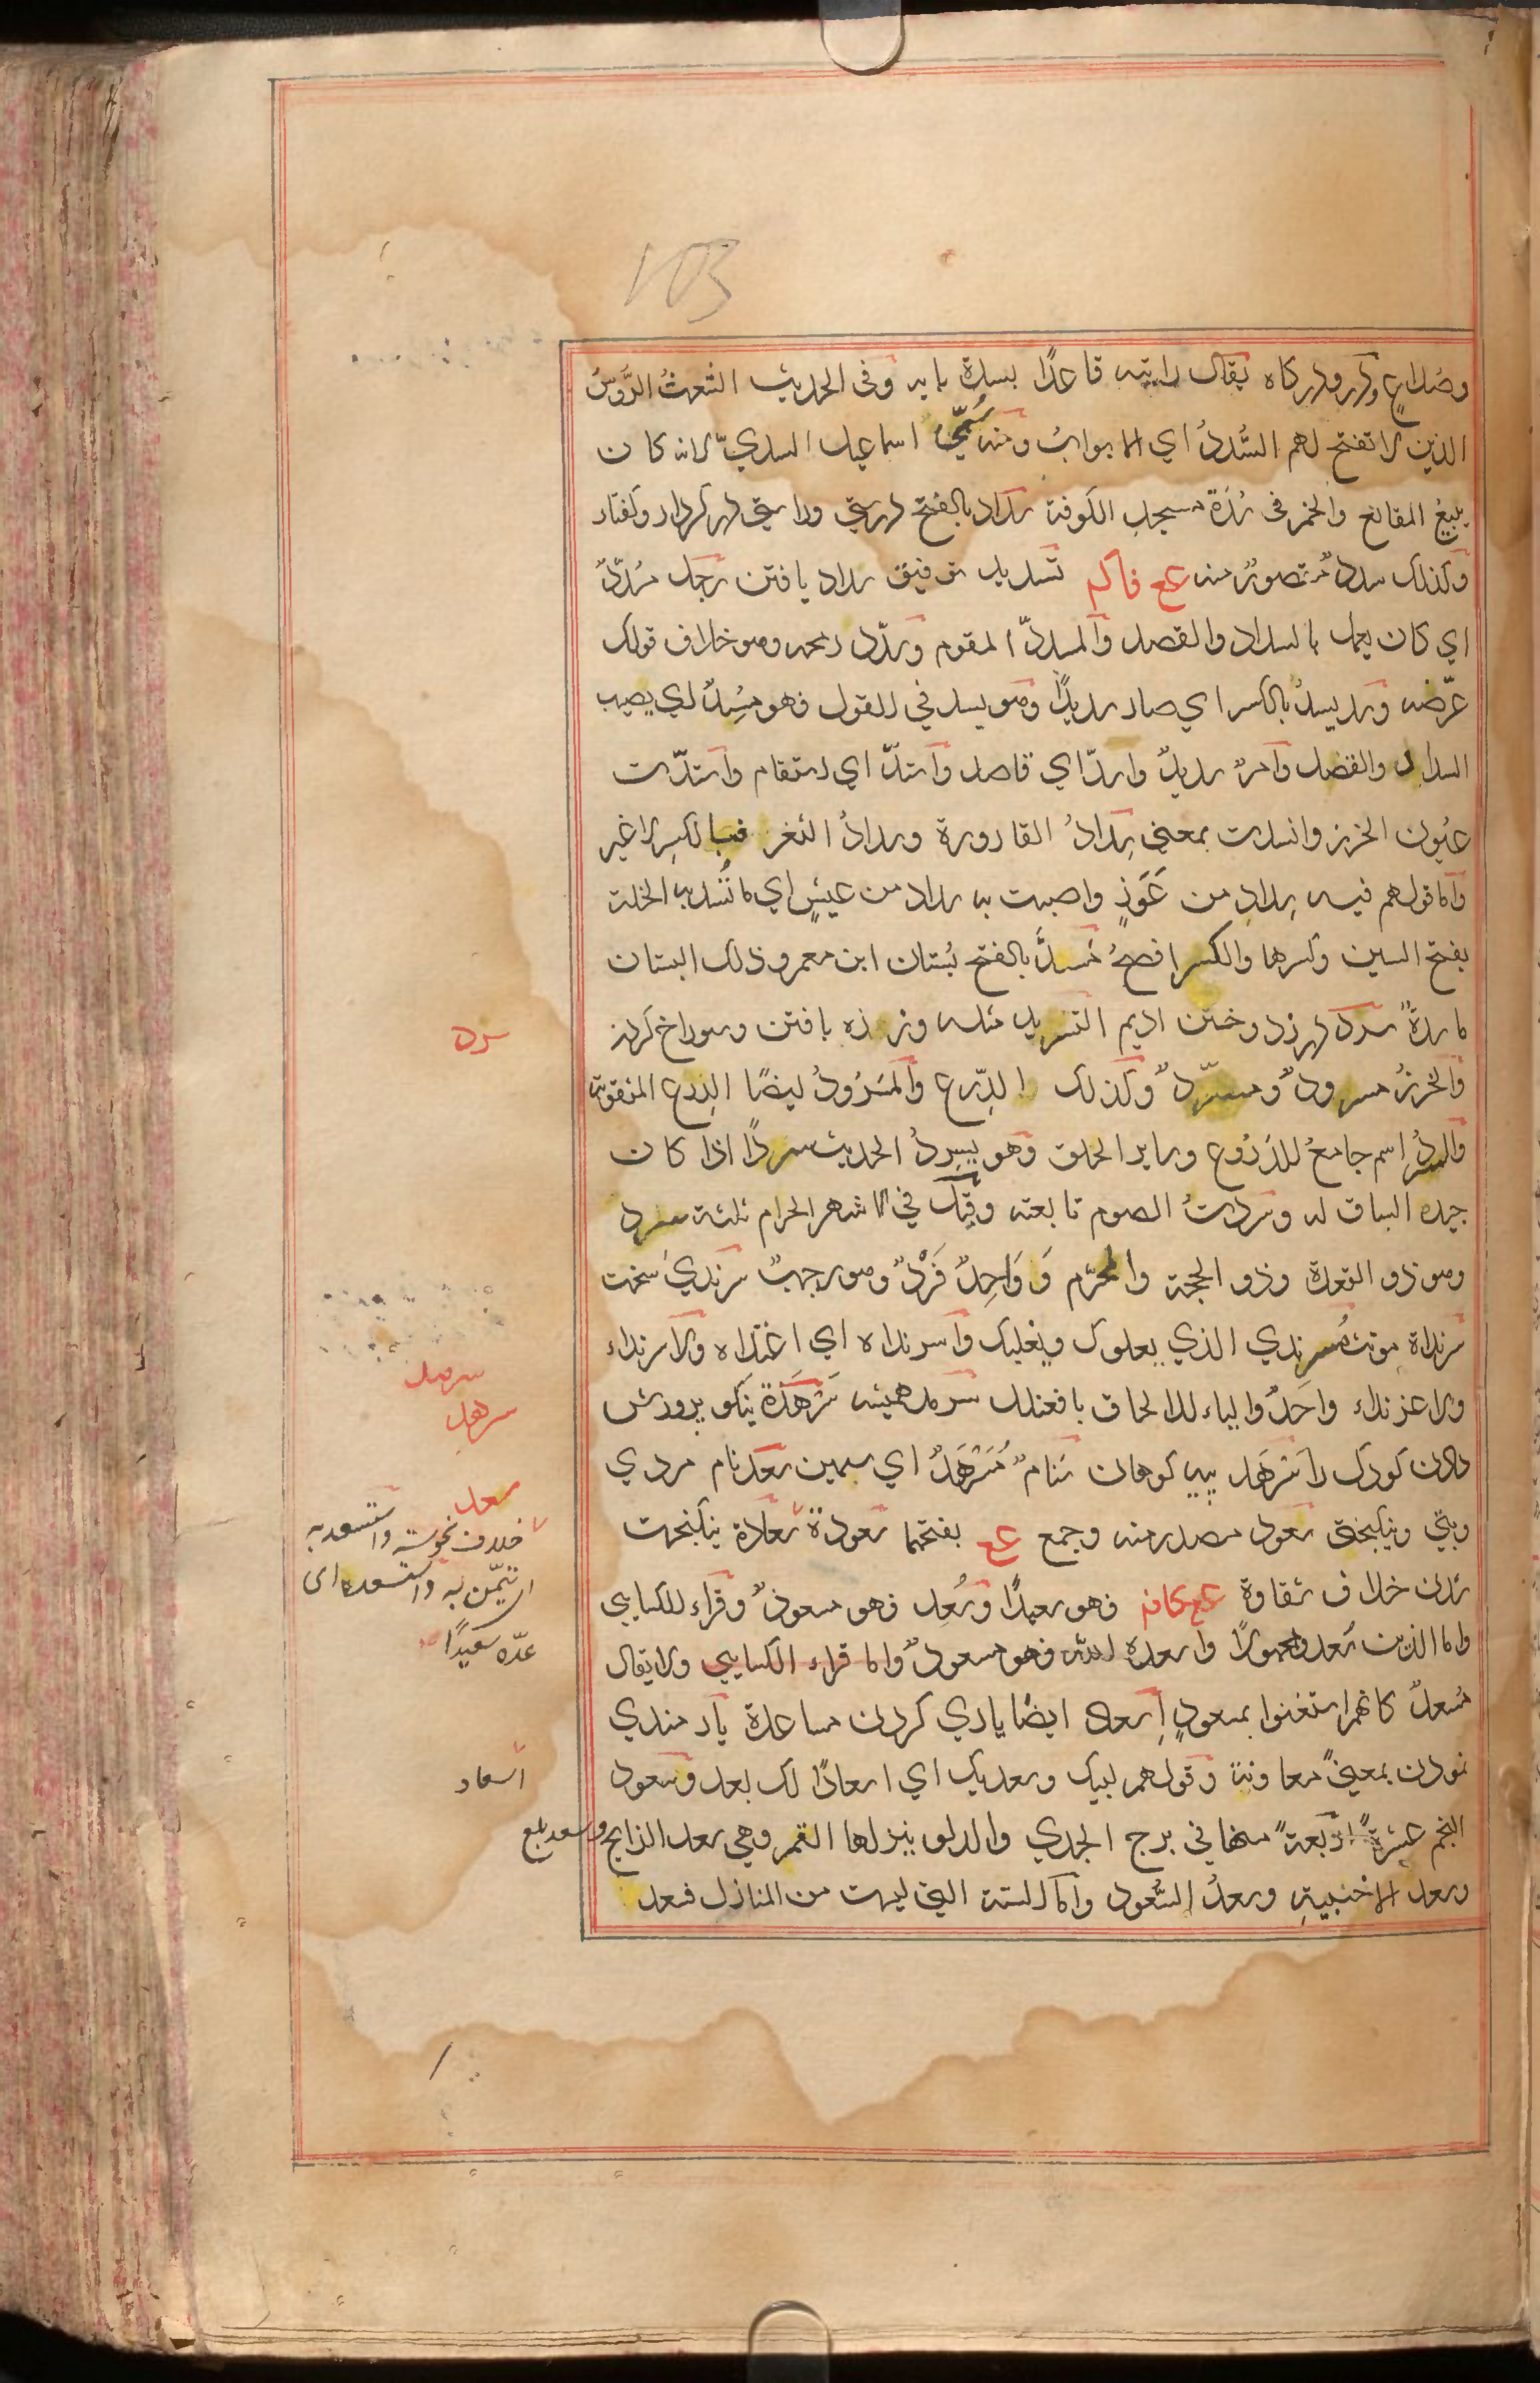 103
وصُداعٍ ودر ودركاه يقال رايته قاعدًا بسدة بابه وفى الحديث الشعثُ الرُّوسُ
الذين لا تفتح لهم السُّددُ اي الابوابُ ومنه سُمّيَ اسماعيل السديّ لانه كان
يبيعُ المقانع والخمر فى سُدّة مسجد الكوفة سداد بالفتح درستي وراستي در كردار وكفتار
وكذلك سددٌ مقصورٌ منه عع فاكم تسديد توفيق سداد يافتن رجل مُسدّدٌ
اي كان يعمل بالسداد والقصد والمسددّ المقوم وسدّد رمحه وهو خلاف قولك
عرّضه وسد يسدّ بالكسر اي صار سديدًا وهو يسد في القول فهو مُسِدّ اي يصيب
السداد والقصد وامرٌ سديدٌ واسدّ اي قاصد واستدّ اي استقام واستدّت
عيُون الخرز وانسدت بمعني سِدادُ القارورة وسدادُ الثغر فبالكسر لا غير
واما قولهم فيه سِداد من عَوَزٍ واصبت به سداد من عيشٍ اي ما تُسد به الخلة
بفتح السين وكسرها والكسر افصحُ مَسدّ بالفتح بُستان ابن معمر وذلك البستان
ماسدةٌ سرد درز دوختن اديم التسريد مثله وزره بافتن وسوراخ كردن
والخرزُ مسرودٌ ومسرّدٌ وكذلك الدِّرع والمَسرُودُ ايضًا الدرع المثقوبة
والسردُ اسم جامعٌ للدرُوع وساير الحلق وهو يسرِدُ الحديث سردًا اذا كان
جيد السياق له وسردتُ الصوم تابعته وقيل في الاشهر الحرام ثلثة سرد
وهو ذو القعدة وذو الحجة والمحرّم وَ وَاحِدٌ فَرْدٌ وهو رجبٌ سرندي سخت
سرنداة مونث مُسرندي الذي يعلوك ويغلبك واسرنداه اي اغتداه والاسرنداء
والاغرنداء واحَدٌ والياء للالحاق بافعنلل سرمد هميشه سَرْهَدَة نيكو پرورش
دادن كودك را سَرهَد پيه كوهان سَنام مُسَرْهَدٌ اي سمين سعد نام مردي
وبتي ونيكبختى سعود مصدر منه وجمع عع بفتحها سعودة سعادة نيكبخت
شدن خلاف شقاوة عع كافر فهو سعيدٌ وسُعِد فهو مسعودٌ وقراء للكسايي
واما الذين سُعدوا مجهولًا واسعده اللّٰه فهو مسعودٌ واما قراء الكسايي ولا يقال
مُسعدٌ كانهم استغنوا بمسعودٍ اِسعاد ايضًا ياري كردن مساعدة يارمندي
نمودن بمعنيً معاونة وقولهم لبيك وسعديك اي اسعادًا لك بعد وسعود
النجم عشرةٌ اربعةٌ منها في برج الجدي والدلو ينزلها القمر وهي سعد الذابح وسعد بلع
وسعد الاخبية وسعدُ السُّعود واما الستة التي ليست من المنازل فسعد
سرد
سرمد
سرهد
سعد
خلاف نحوسة واستسعد به
اي تيمّن به واستسعده اي
عدّه سعيدًا
اسعاد